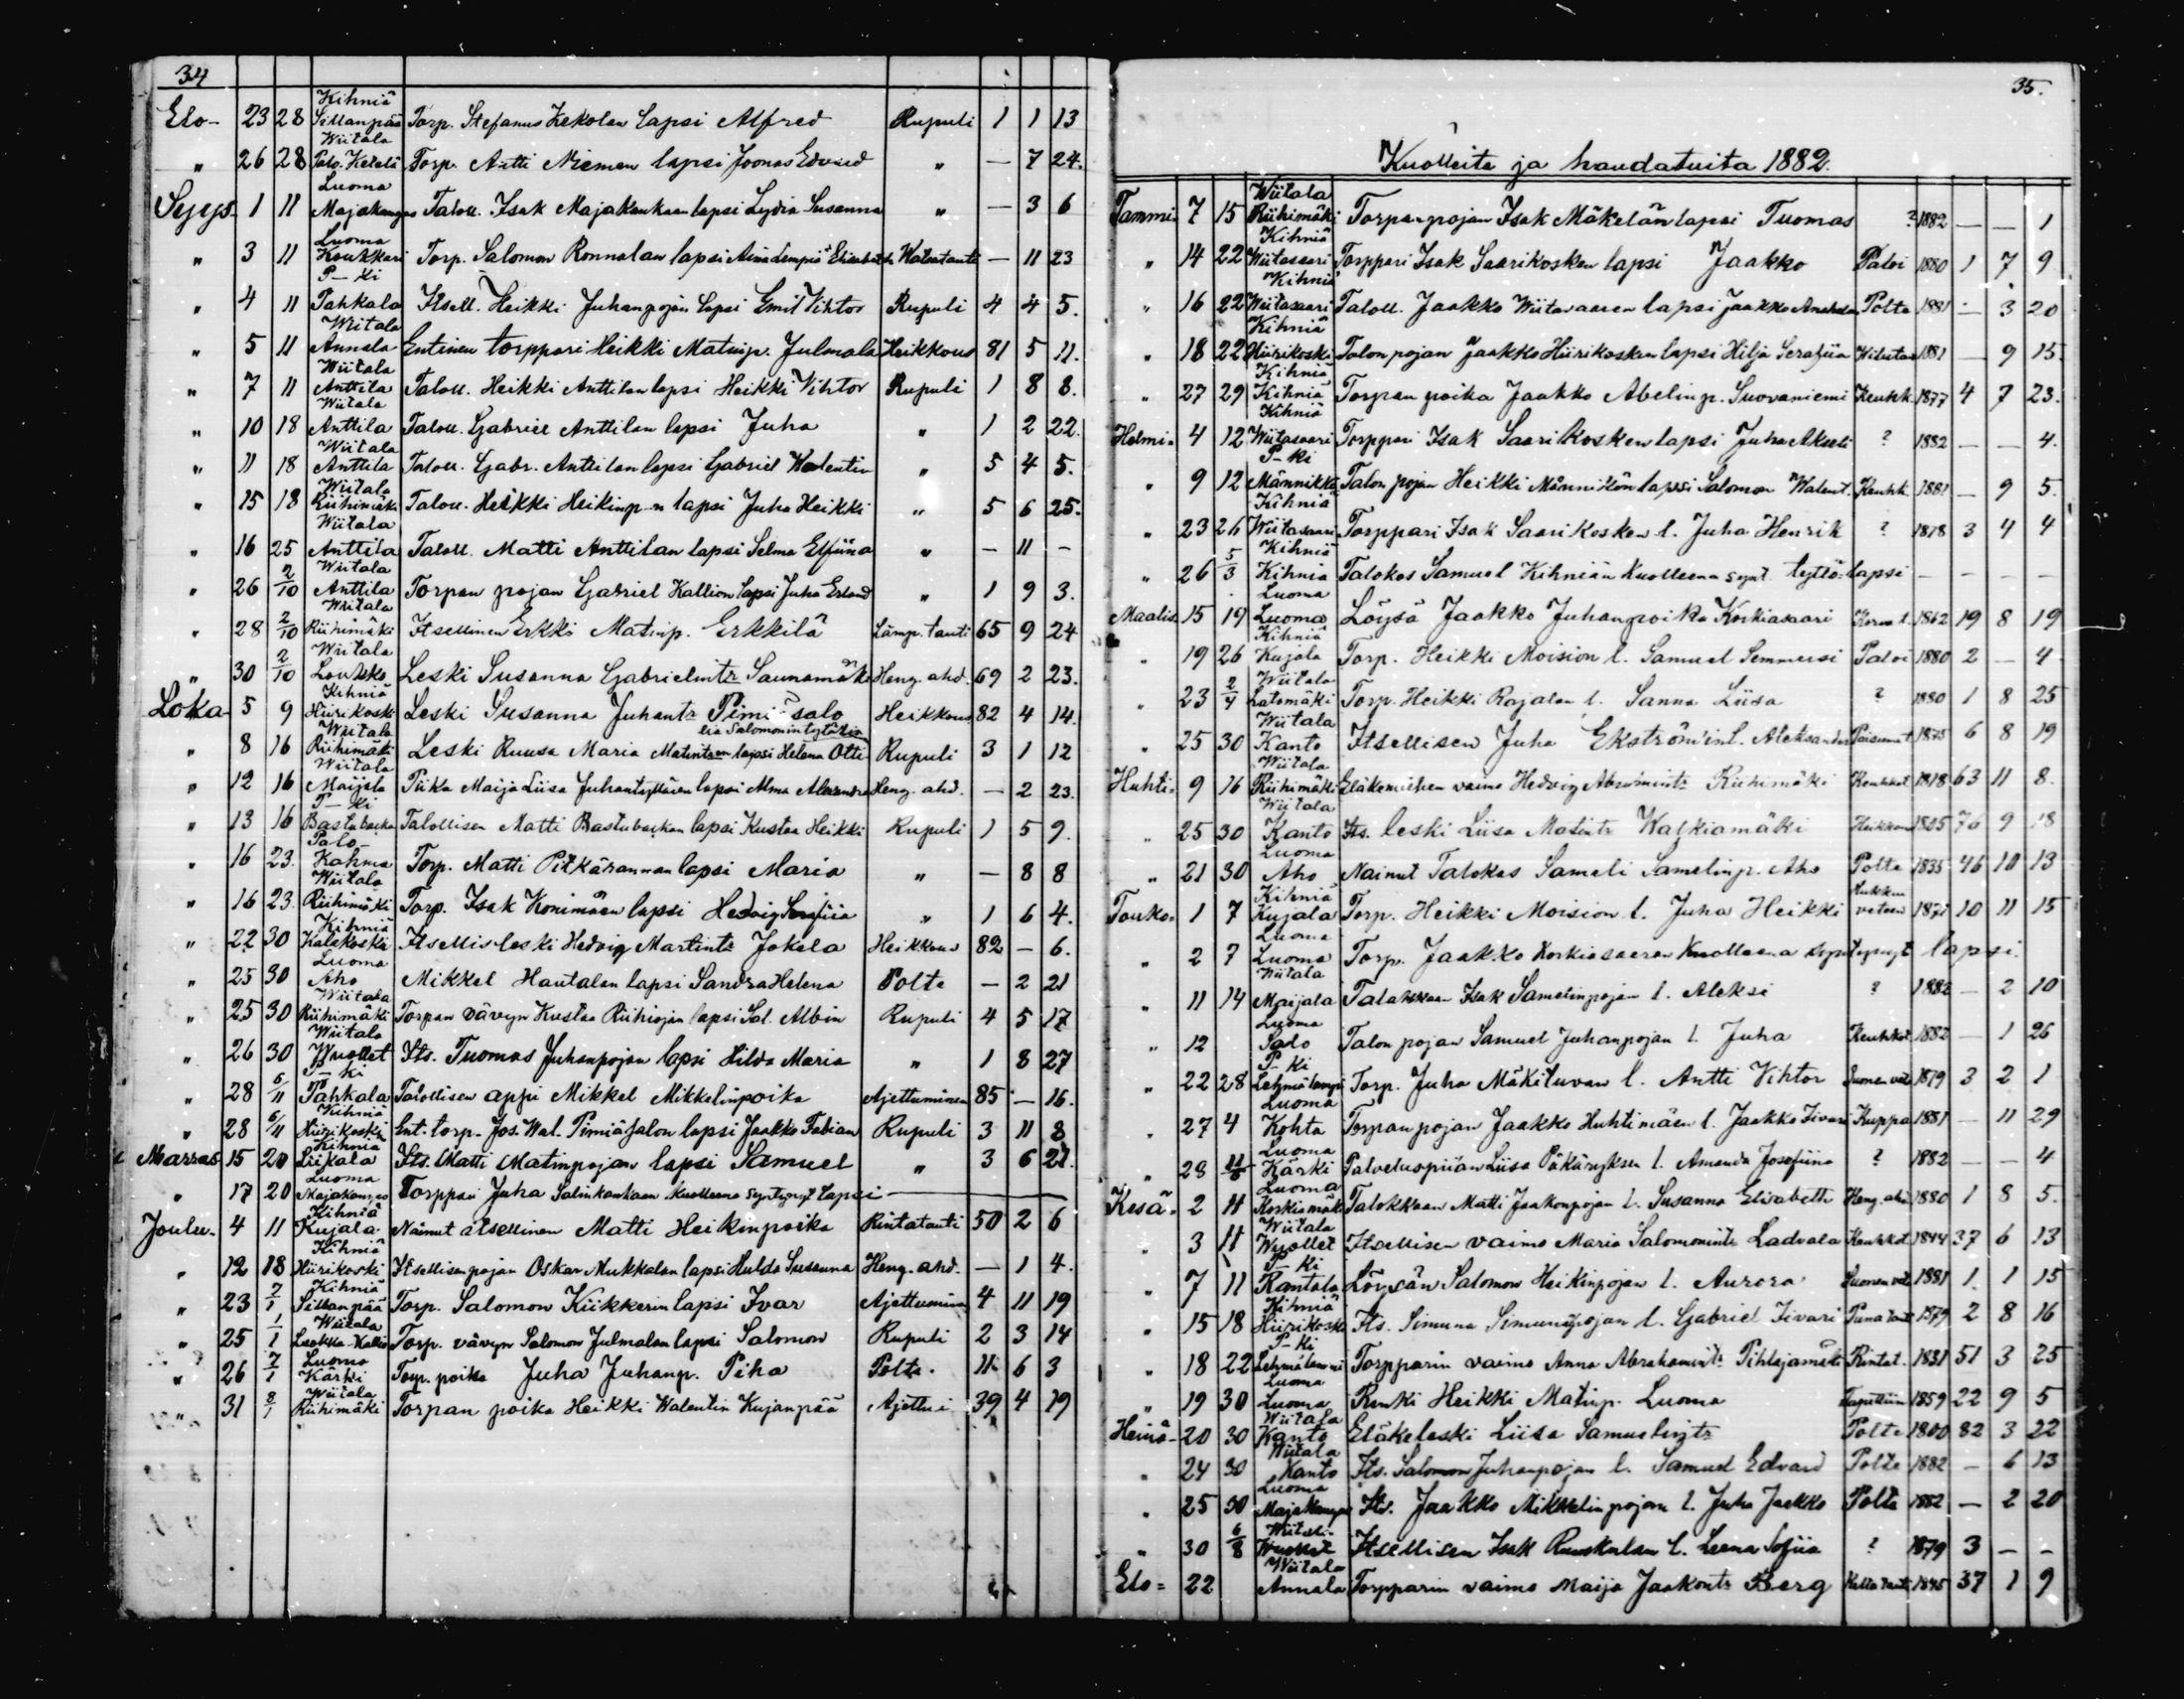 34
Elo- 23 28 Kihniä Sillanpää Torp. Stefanus Kekolan lapsi Alfred Rupuli 1 1 13
" 26 28 Wiitala Torp. Antti Niemen lapsi Joonas Edvard " — 7 24.
Syys- 1 11 Luoma Majakangas Taloll. Isak Majakankaan lapsi Lydia Susanna " — 3 6
" 3 11 Luoma Koukkari Torp. Salomon Ronnalan lapsi Aina Lempiä Elisabeth — 11 23
" 4 11 P-ki Tahkala Itsell. Heikki Juhanpojan lapsi Emil Vihtor Rupuli 4 4 5.
" 5 11 Wiitala Annala Entinen torppari Heikki Matinp. Julmala Heikkous 81 5 11.
" 7 11 Wiitala Anttila Taloll. Heikki Anttilan lapsi Heikki Vihtor Rupuli 1 8 8.
" 10 18 Wiitala Anttila Taloll. Gabriel Anttilan lapsi Juha " 1 2 22.
" 11 18 Wiitala Anttila Taloll. Gabr. Anttilan lapsi Gabriel Walentin " 5 4 5.
" 15 18 Wiitala Riihimäki Taloll. Heikki Heikinp-n lapsi Juha Heikki " 5 6 25.
" 16 25 Wiitala Anttila Taloll. Matti Anttilan lapsi Selma Elfiina " — 11 —
" 26 2/10 Wiitala Anttila Torpan pojan Gabriel Kallion lapsi Juha Erland " 1 9 3.
" 28 2/10 Wiitala Riihimäki Itsellinen Erkki Matinp. Erkkilä Lämp. tauti 65 9 24
" 30 2/10 Wiitala Louhko Leski Susanna Gabrielintr Saunamäki Heng. ahd. 69 2 23.
Loka- 5 9 Kihniä Hiirikoski Leski Susanna Juhantr Pimiäsalo Heikkous 82 4 14.
" 8 16 Wiitala Riihimäki Leski Ruusa Maria lapsi Helena Otti Rupuli 3 1 12
" 12 16 Wiitala Maijala Piika Maija Liisa Juhantyttären lapsi Alma Alexandra Heng. ahd. — 2 23.
" 13 16 P-ki Bastubacka Talollisen Matti Bastubackan lapsi Kustaa Heikki Rupuli 1 5 9.
" 16 23. Palo- Kahma Torp. Matti Pitkärannan lapsi Maria " — 8 8
" 16 23. Wiitala Riihimäki Torp. Isak Konimäen lapsi Hedvig Serafiia " 1 6 4.
" 22 30 Kihniä Kalikoski Itsellis leski Hedvig Martintr Jokela Heikkous 82 — 6.
" 25 30 Luoma Aho Mikkel Hautalan lapsi Sandra Helena Polte — 2 21
" 25 30 Wiitala Riihimäki Torpan vävyn Kustaa Riihiojan lapsi Sal. Albin Rupuli 4 5 17
" 26 30 Wiitala Wuollet Its. Tuomas Juhanpojan lapsi Hilda Maria " 1 8 27
" 28 6/11 P-ki Tahkala Talollisen appi Mikkel Mikkelinpoika Ajettuminen 85 — 16.
" 28 6/11 Kihniä Hiirikoski Ent. torp. Jos. Wal. Pimiäsalon lapsi Jaakko Fabian Rupuli 3 11 8
Marras 15 20 Kihniä Liikala Its. Matti Matinpojan lapsi Samuel " 3 6 21.
" 17 20 Luoma Majakangas Torppari Juha Salinkankaan kuolleena syntynyt lapsi —
Joulu- 4 11 Kihniä Kujala Nainut itsellinen Matti Heikinpoika Rintatauti 50 2 6
" 12 18 Kihniä Hiirikoski Itsellisenpojan Oskar Mukkalan lapsi Hulda Susanna Heng. ahd. — 1 4.
" 23 7/1 Kihniä Sillanpää Torp. Salomon Kiikkerin lapsi Ivar Ajettuminen 4 11 19
" 25 1/1 Wiitala Torp. vävyn Salomon Julmalan lapsi Salomon Rupuli 2 3 14
" 26 7/1 Luoma Kärki Torp. poika Juha Juhanp. Piha Polte. 11 6 3
" 31 8/1 Wiitala Riihimäki Torpan poika Heikki Walentin Kujanpää Ajettu i 39 4 19
35.
Kuolleita ja haudatuita 1882.
Tammi- 7 15 Wiitala Riihimäki Torpanpojan Isak Mäkelän lapsi Tuomas ? 1882 — — 1
" 14 22 Kihniä Wiitasaari Torppari Isak Saarikosken lapsi Jaakko Paloi 1880 1 7 9
" 16 22 Kihniä Wiitasaari Taloll. Jaakko Wiitavaaren lapsi Jaakko Polte 1881 — 3 20
" 18 22 Kihniä Hiirikoski Talon pojan Jaakko Hiirikosken lapsi Hilja Serafiia 1881 — 9 15.
" 27 29 Kihniä Kihniä Torpan poika Jaakko Abelinp. Suovaniemi Keuhk. 1877 4 7 23.
Helmi- 4 12 Kihniä Wiitasaari Torppari Isak Saarikosken lapsi Juha Akseli ? 1882 — — 4.
" 9 12 P-ki Männikkö Talon pojan Heikki Männikön lapsi Salomon Walent. Keuhk. 1881 — 9 5.
" 23 26 Kihniä Wiitasaari Torppari Isak Saarikosken l. Juha Henrik ? 1878 3 4 4
" 26 5/3 Kihniä Kihniä Talokas Samuel Kihniän kuolleena synt. tyttö-lapsi — — — —
Maalis. 15 19 Luoma Luoma Löysä Jaakko Juhanpoika Korkiasaari 1862 19 8 19
" 19 26 Kihniä Kujala Torp. Heikki Moision l. Samuel Semmersi Paloi 1880 2 — 4.
" 23 2/4 Wiitala Latomäki Torp. Heikki Rajalan l. Sanna Liisa ? 1880 1 8 25
" 25 30 Wiitala Kanto Itsellisen Juha Ekström'in l. Aleksander 1875 6 8 19
Huhti- 9 16 Wiitala Riihimäki Eläkemiehen vaimo Hedvig Riihimäki 1818 63 11 8.
" 25 30 Wiitala Kanto Its. leski Liisa Matintr Walkiamäki Heikkous 1805 76 9 18
" 21 30 Luoma Aho Nainut Talokas Sameli Samelinp. Aho Polte 1835 46 10 13
Touko- 1 7 Kihniä Kujala Torp. Heikki Moision l. Juha Heikki Hukkui veteen 1871 10 11 15
" 2 7 Luoma Luoma Torp. Jaakko Korkiasaaren kuolleena syntynyt lapsi.
" 11 14 Wiitala Maijala Talokkaan Isak Samelinpojan l. Aleksi ? 1882 — 2 10
" 12 Luoma Talo Talon pojan Samuel Juhanpojan l. Juha 1882 — 1 26
" 22 28 P-ki Lehmälampi Torp. Juha Mäkituvan l. Antti Vihtor 1879 3 2 1
" 27 4 Luoma Kohta Torpan pojan Jaakko Huhtimäen l. Jaakko Iivari Kuppa 1881 — 11 29
" 28 11/6 Luoma Kärki Palveluspiian Liisa l. Amanda Josefiina ? 1882 — — 4
Kesä- 2 11 Luoma Korkiamäki Talokkaan Matti Jaakonpojan l. Susanna Elisabetti Heng. ahd 1880 1 8 5.
" 3 11 Wiitala Wuollet Itsellisen vaimo Maria Salomonintr Ladvala 1844 37 6 13
" 7 11 P-ki Rantala Löysän Salomon Heikinpojan l. Aurora 1881 1 1 15
" 15 18 Kihniä Hiirikoski Its. Simuna Simunanpojan l. Gabriel Iivari 1879 2 8 16
" 18 22 P-ki Lehmälammi Torpparin vaimo Anna Abrahamintr Pihlajamäki Rintat. 1831 51 3 25
" 19 30 Luoma Luoma Renki Heikki Matinp. Luoma 1859 22 9 5
Heinä- 20 30 Wiitala Kanto Eläkeleski Liisa Samuelintr Polte 1800 82 3 22
" 24 30 Wiitala Kanto Its. Salomon Juhanpojan l. Samuel Edvard Polte 1882 — 6 13
" 25 30 Luoma Majakangas Its. Jaakko Mikkelinpojan l. Juha Jaakko Polte 1882 — 2 20
" 30 6/8 Wiitala Wuollet Itsellisen Isak Ruuskulan l. Leena Sofiia ? 1879 3 — —
Elo= 22 Wiitala Annala Torpparin vaimo Maija Jaakontr Berg 1845 37 1 9